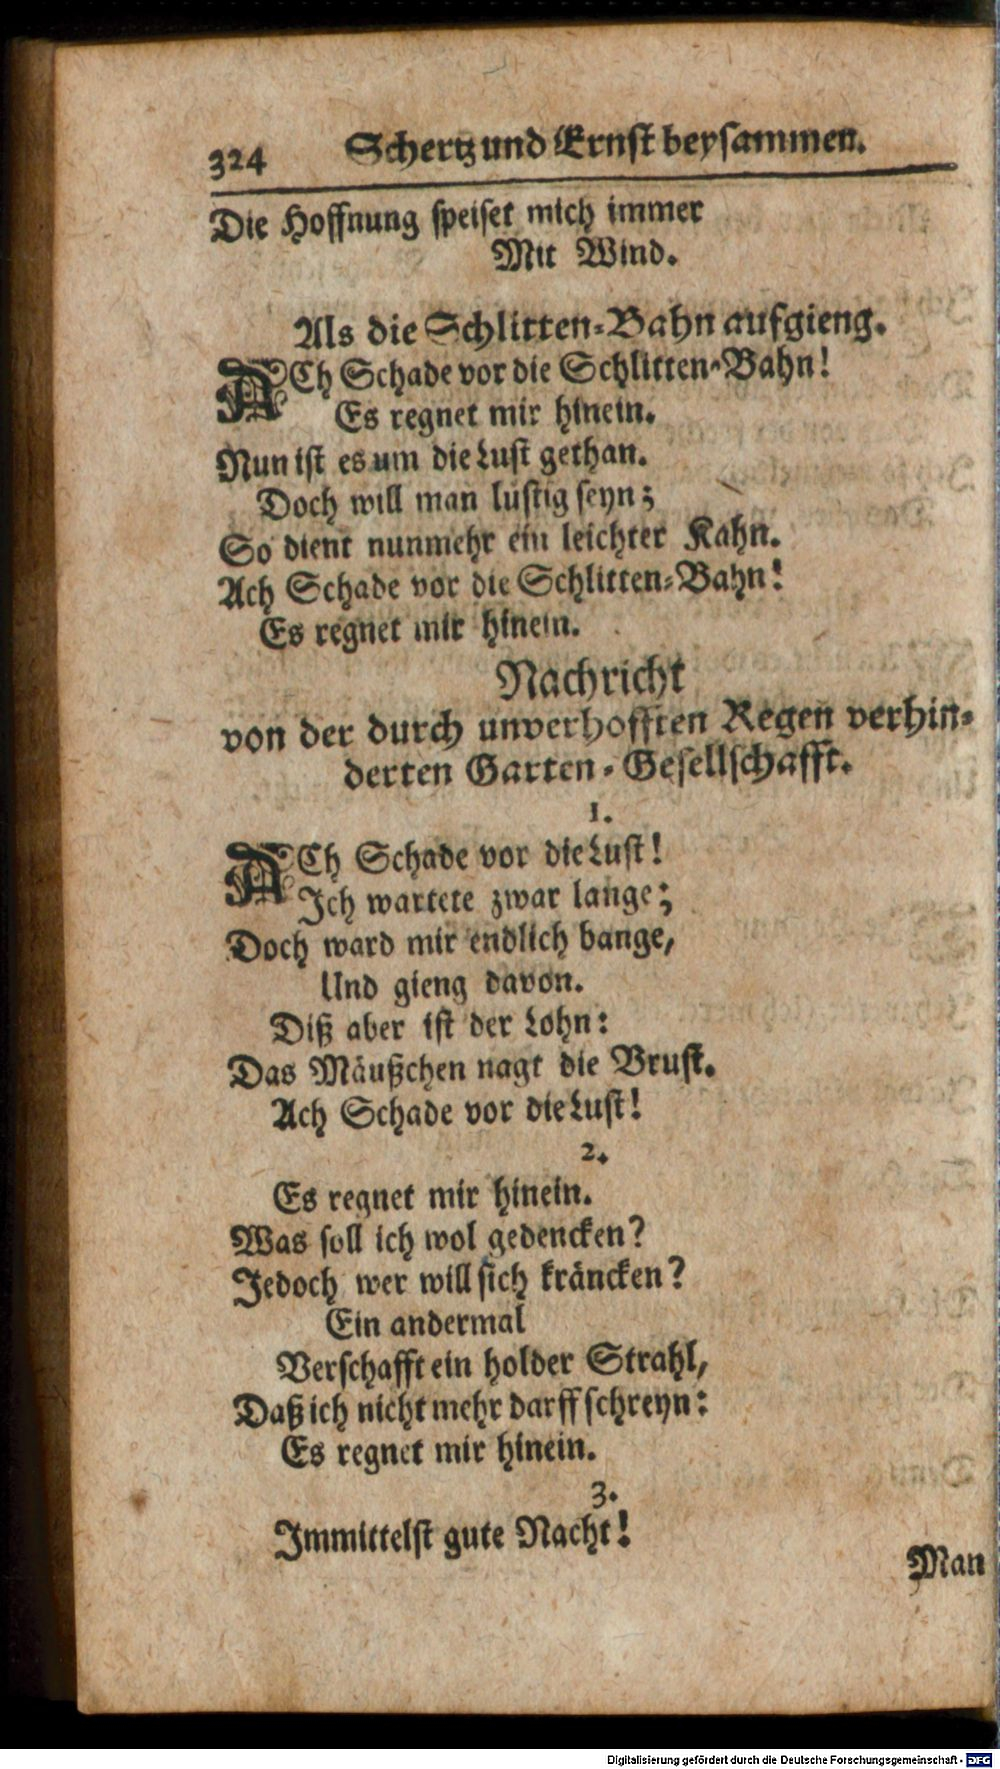 324 Schertz und Ernst beysammen.
Die Hoffnung speiset mich immer
Mit Wind.
Als die Schlitten-Bahn aufgieng.
ACh Schade vor die Schlitten-Bahn!
Es regnet mir hinein.
Nun ist es um die Lust gethan.
Doch will man lustig seyn;
So dient nunmehr ein leichter Kahn.
Ach Schade vor die Schlitten-Bahn!
Es regnet mir hinein.
Nachricht
von der durch unverhofften Regen verhin-
derten Garten-Gesellschafft.
1.
ACh Schade vor die Lust!
Ich wartete zwar lange;
Doch ward mir endlich bange,
Und gieng davon.
Diß aber ist der Lohn:
Das Mäußchen nagt die Brust.
Ach Schade vor die Lust!
2.
Es regnet mir hinein.
Was soll ich wol gedencken?
Jedoch wer will sich kräncken?
Ein andermal
Verschafft ein holder Strahl,
Daß ich nicht mehr darff schreyn:
Es regnet mir hinein.
3.
Immittelst gute Nacht!
Man
Digitalisierung gefördert durch die Deutsche Forschungsgemeinschaft - DFG